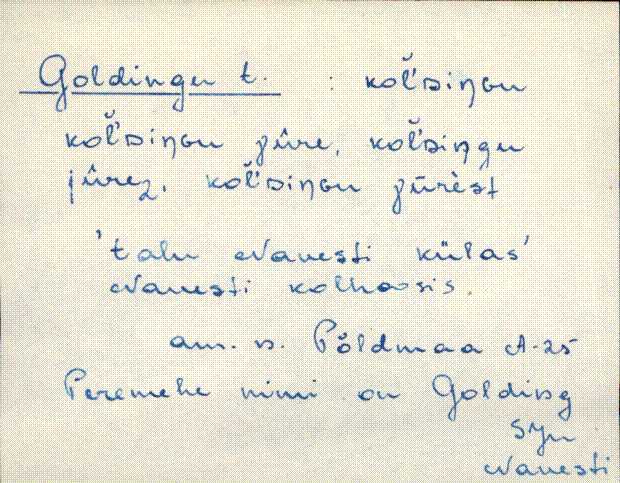 Goldingu t. : koľ̆ᴅiŋɢu
koľ̆ᴅiŋɢu jūre, koľ̆ᴅiŋgu
jūrez, koľ̆ᴅiŋɢu jūrèst
'talu Navesti külas'
Navesti kolhoosis.
am. v. Põldmaa A-25
Peremehe nimi on Golding
SJn
Navesti